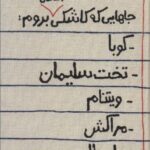 جاهایی که کاشکی بروم:
- کوبا
- تخت سلیمان
- ویتنام
- مراکش